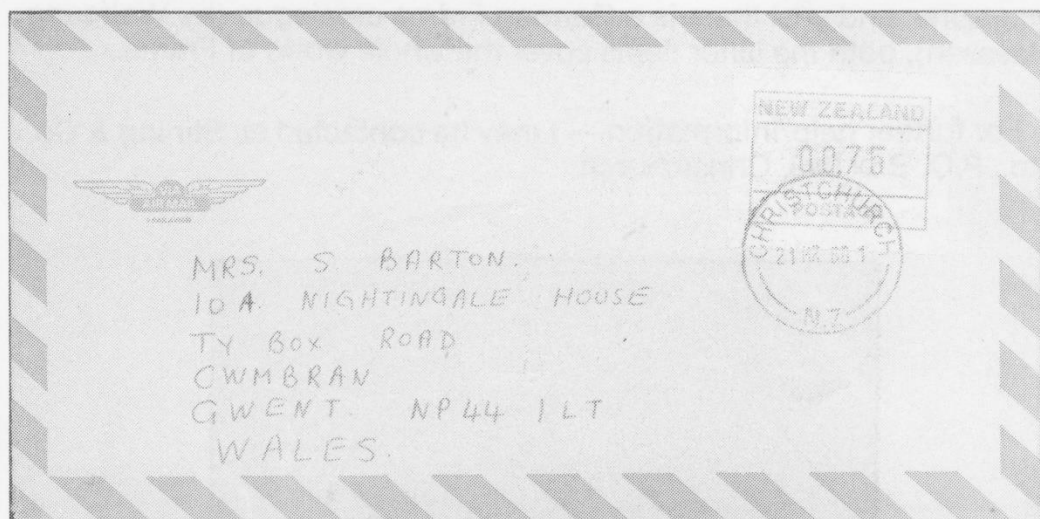 NEW ZEALAND
00.75
POSTAGE
CHRISTCHURCH
N.Z
AIR MAIL
MRS. S BARTON.
10A NIGHTINGALE HOUSE
TY BOX ROAD
CWMBRAN
GWENT. NP44 1LT
WALES.